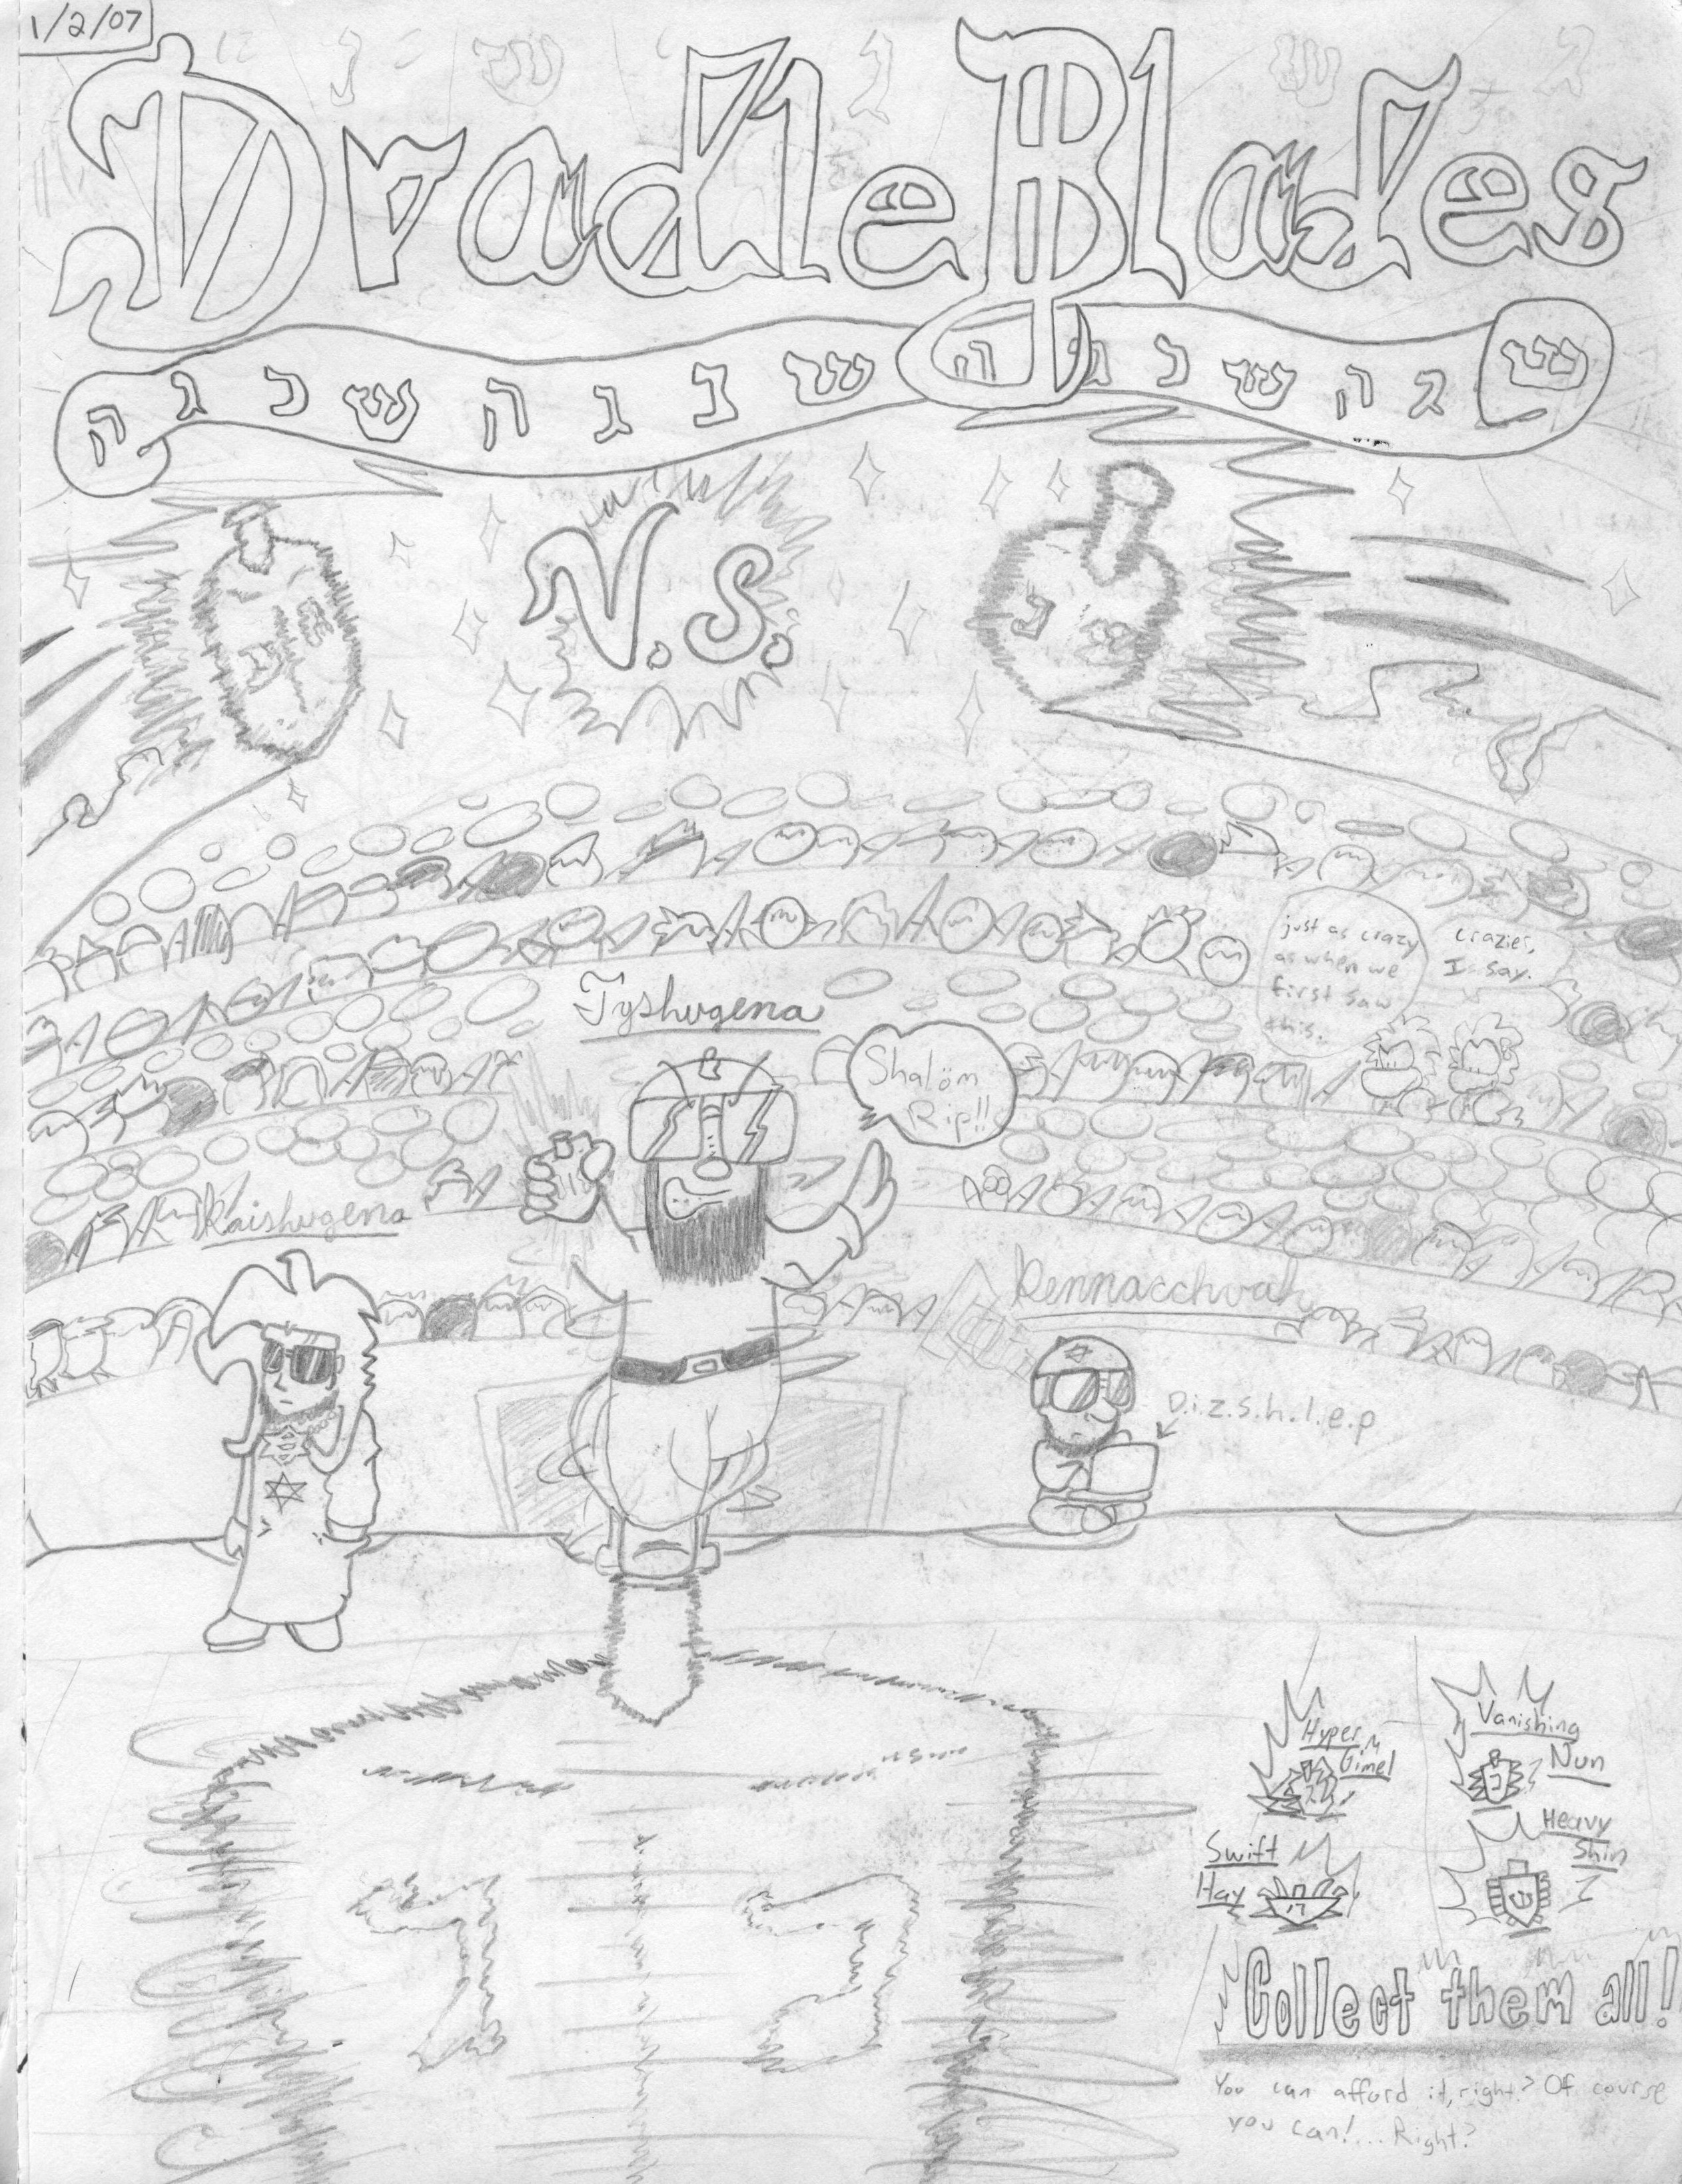 1/2/07
Dradle Blades
ש ג ה ש נ ג ה ש נ ג ה ש נ ג ה
V.S.
just as crazy
as when we
first saw
this.
crazier,
I say.
Tyshugena
Shalöm
Rip!!
Kaishugena
Kennacchvah
D.i.z.s.h.l.e.p
נ ג
Hyper
Gimel
Vanishing
Nun
Swift
Hay
Heavy
Shin
Collect them all!
You can afford it, right? Of course
you can!... Right?